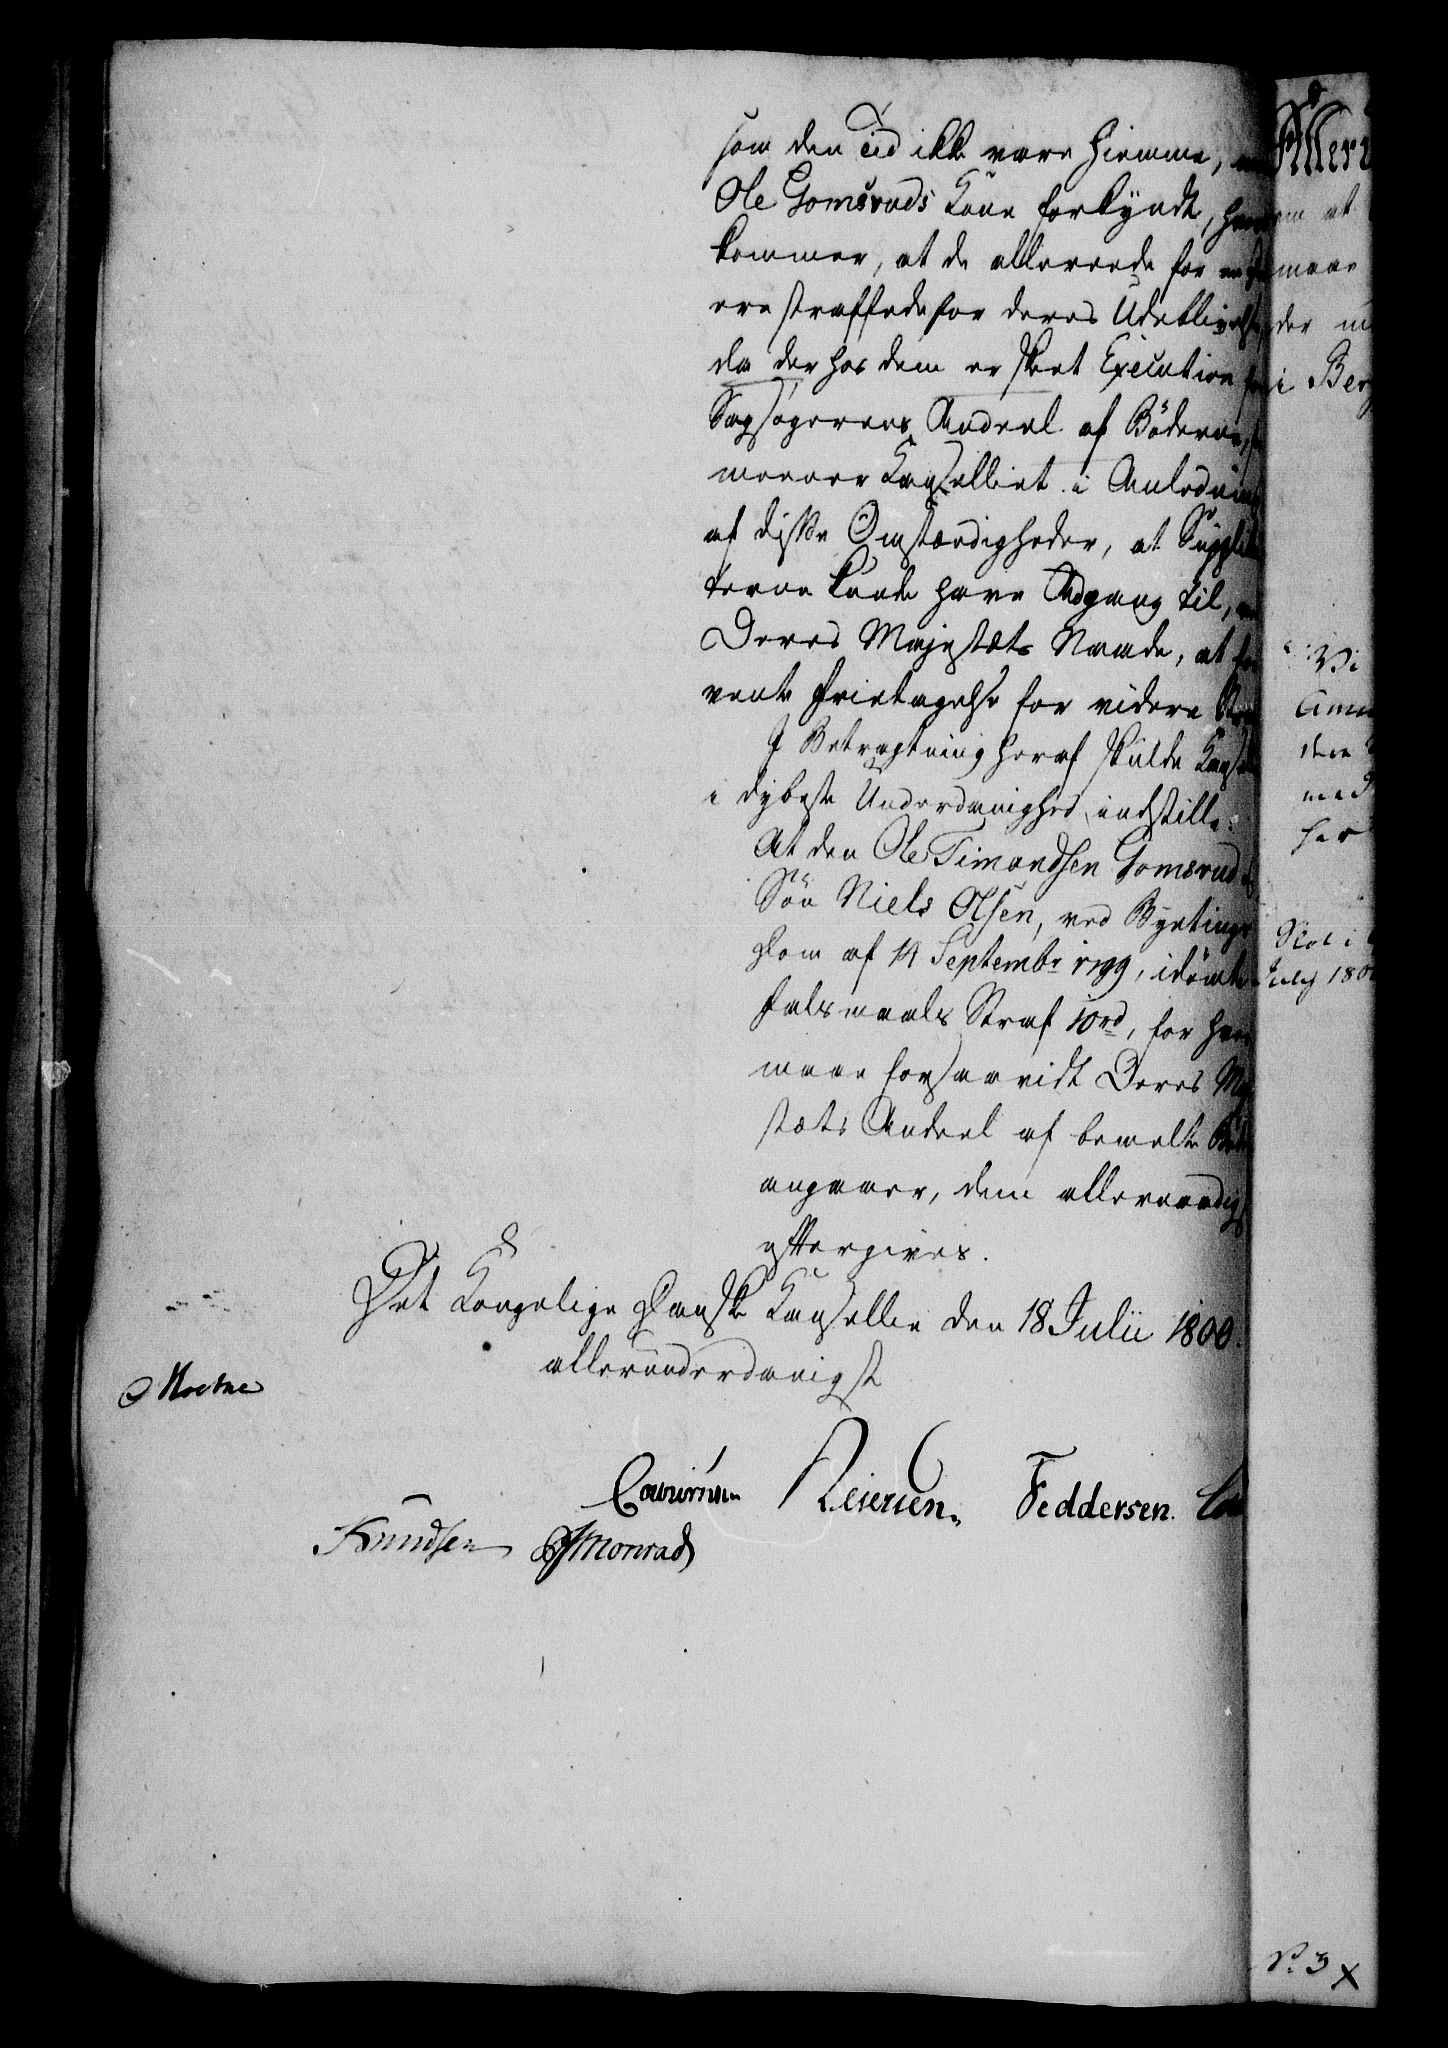 som den Tid ikke vare hiemme,
Ole Gomsruds Kone forkyndt,
kommer, at de allerede for
ere straffede for deres Udeblivelse,
da der hos dem er skeet Execution
Sagsøgerens Andeel af Bøderne,
meener Cancelliet i Anledning
af disse Omstændigheder, at Supplikan
terne kunde have Adgang til,
Deres Majestæts Naade, at for
vente Frietagelse for videre
I Betragtning heraf skulde
i dybeste Underdanighed indstille:
At den Ole Simondsen Gomsrud
Søn Niels Olsen, ved Bytings
Dom af 14 Septembr 1799, idømte
Falsmaals Straf 10 rd, for
maae forsaavidt Deres
stæts Andeel af bemelte
angaaer, dem allernaadigst
eftergives.
Det Kongelige Danske Cancellie den 18 Julii 1800.
allerunderdanigst
Moltke
Reiersen.
Feddersen.
Knudsen
Monrad
i Ber
med
her
July 180
No. 3